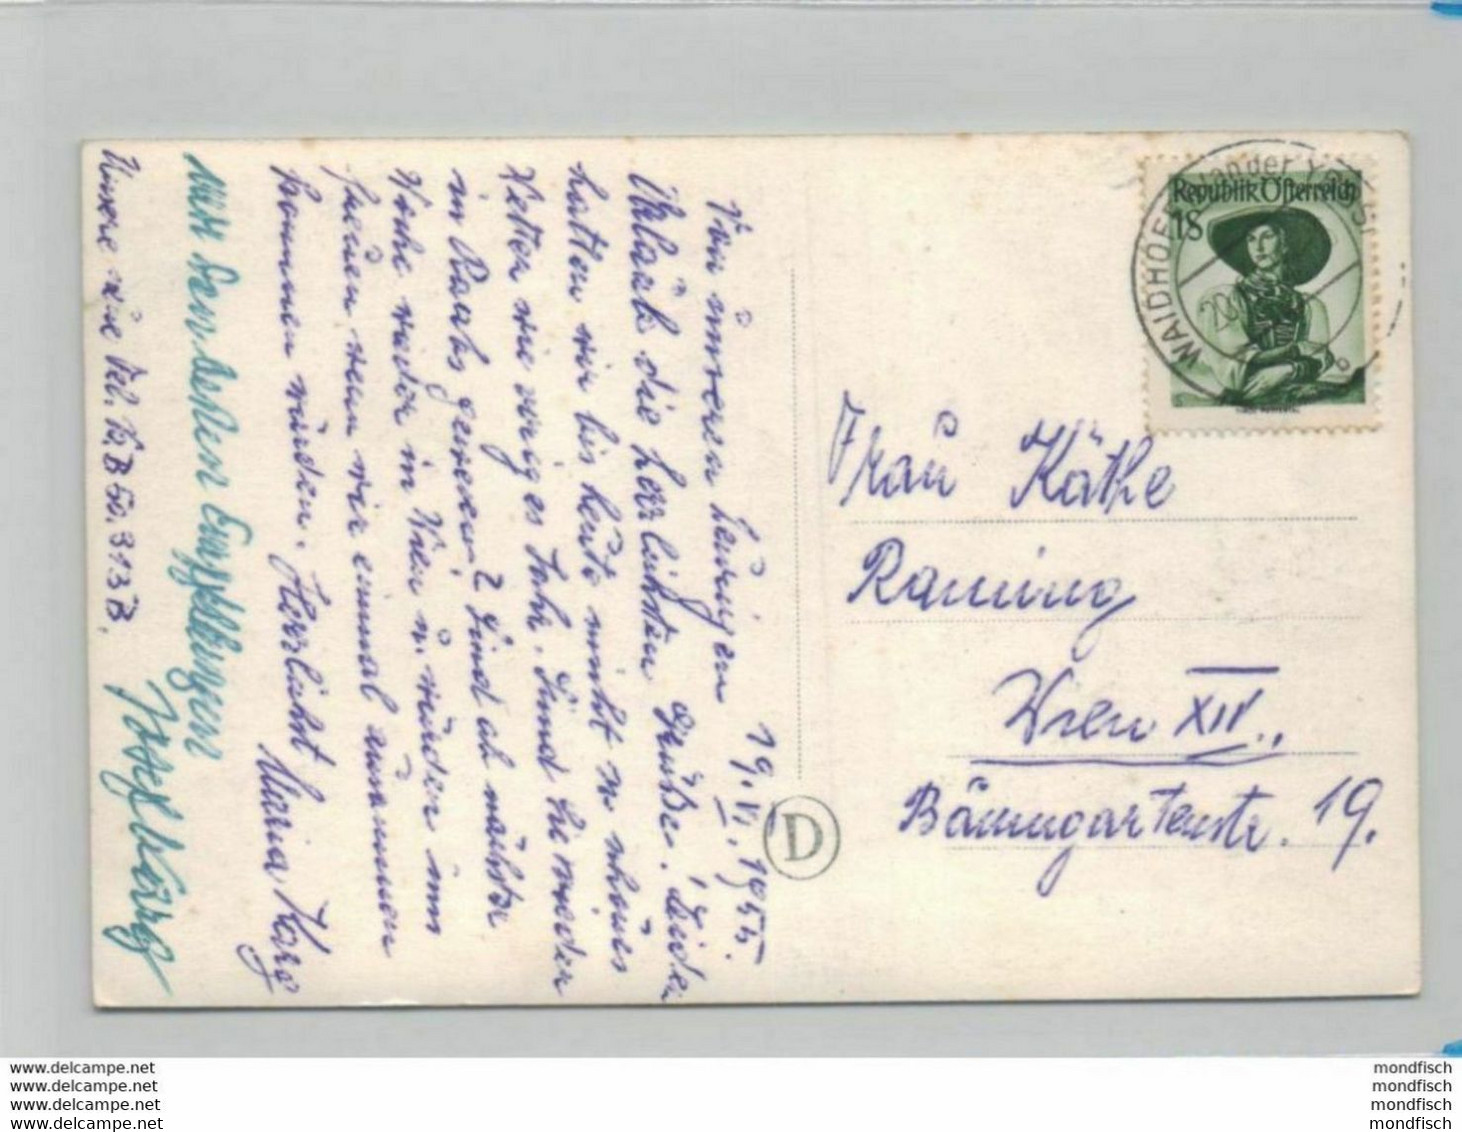 19. VI. 1955.
Von unserem heurigen
Urlaub die herzlichsten Grüße. Leider
hatten wir bis heute nicht so schönes
Wetter wie voriges Jahr. Sind wieder
in Raabs gewesen. Sind ab nächste
Woche wieder in Wien u. würden uns
freuen wenn wir einmal zusammen
kommen würden. Herzlichst Maria Karg
mit den besten Empfehlungen
Josef Karg
Unsere Tel. B 50.313 B.
Frau Käthe
Raming
Wien XIV.,
Baumgartenstr. 19.
Republik Österreich
1S
WAIDHOFEN an der Ybbs
D
www.delcampe.net
www.delcampe.net
www.delcampe.net
www.delcampe.net
mondfisch
mondfisch
mondfisch
mondfisch